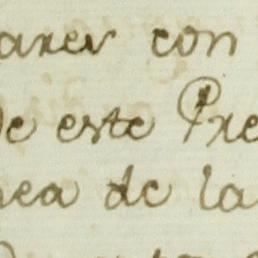 arer con
de este Pre
nea de la